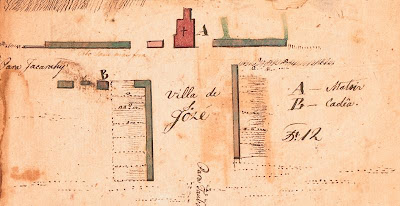 A
Para Jacarehy
B
Villa de
S.
Joze
A — Matriz
B — Cadêa.
Nº 12
Para